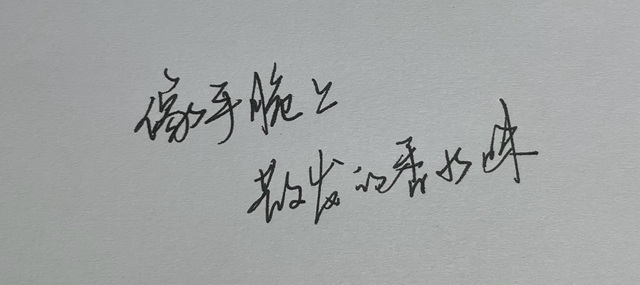 像手腕上
散发的香水味